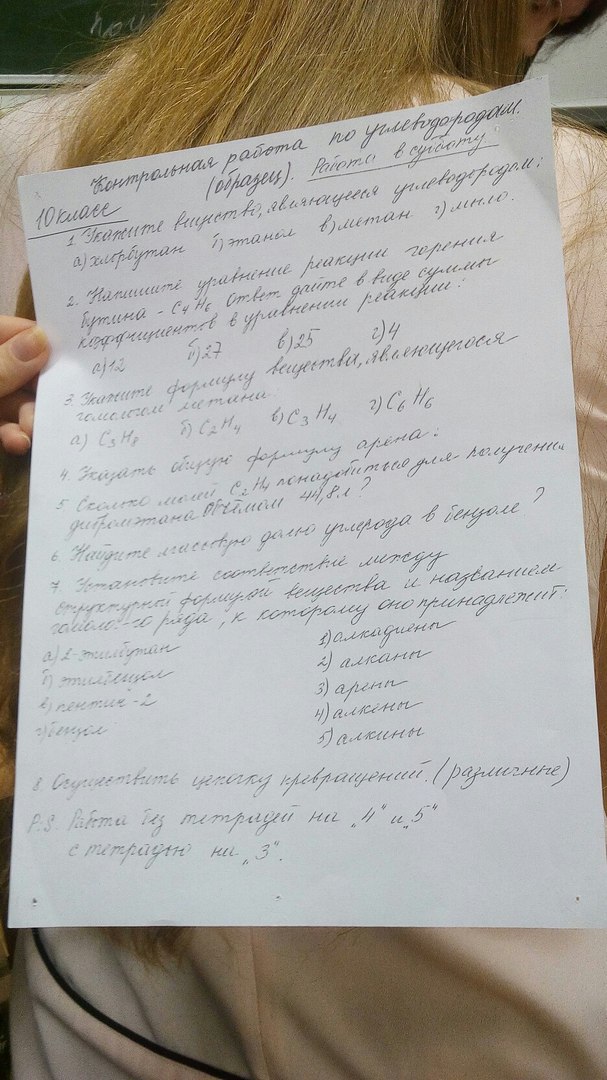 Контрольная работа по углеводородам.
(образец). Работа в субботу
10 класс
1. Укажите вещество, являющееся углеводородом:
а) хлорбутан б) этанол в) метан г) мыло.
2. Напишите уравнение реакции горения
бутина - C4H6 ответ дайте в виде суммы
коэффициентов в уравнении реакции:
а) 12 б) 27 в) 25 г) 4
3. Укажите формулу вещества, являющегося
гомологом метана:
а) C3H8 б) C2H4 в) C3H4 г) C6H6
4. Указать общую формулу арена:
5. Сколько молей C2H4 понадобиться для получения
дибромэтана объёмом 44,8 л?
6. Найдите массовую долю углерода в бензоле?
7. Установите соответствие между
структурной формулой вещества и названием
гомолог-го ряда, к которому оно принадлежит:
а) 2-этилбутан 1) алкадиены
б) этилбензол 2) алканы
в) пентин-2 3) арены
г) бензол 4) алкены
5) алкины
8. Осуществить цепочку превращений. (различные)
P.S. Работа без тетрадей на „4" и „5"
с тетрадью на „3".